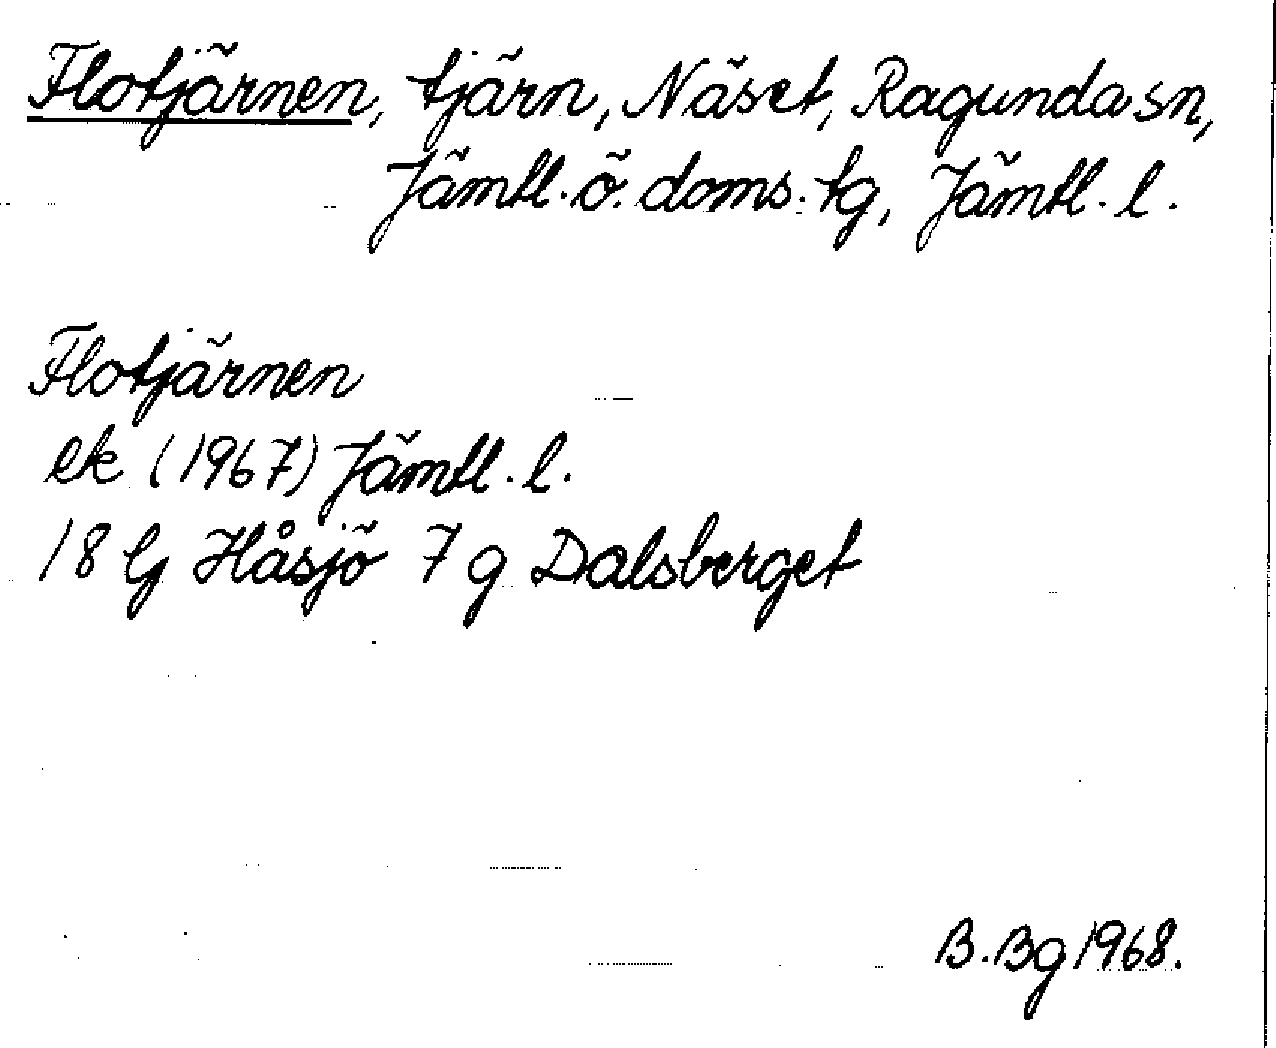 Flotjärnen, tjärn, Näset, Ragunda sn,
Jämtl. ö. doms. tg, Jämtl. l.
Flotjärnen
ek (1967) Jämtl. l.
18 G Håsjö 7 g Dalsberget
B. Bg 1968.